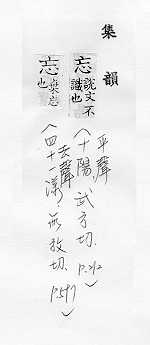 集韻
忘 說文不識也
平聲
〈十陽〉武方切. p.212
忘 棄忘也
去聲
〈四十一漾〉無放切. p.597